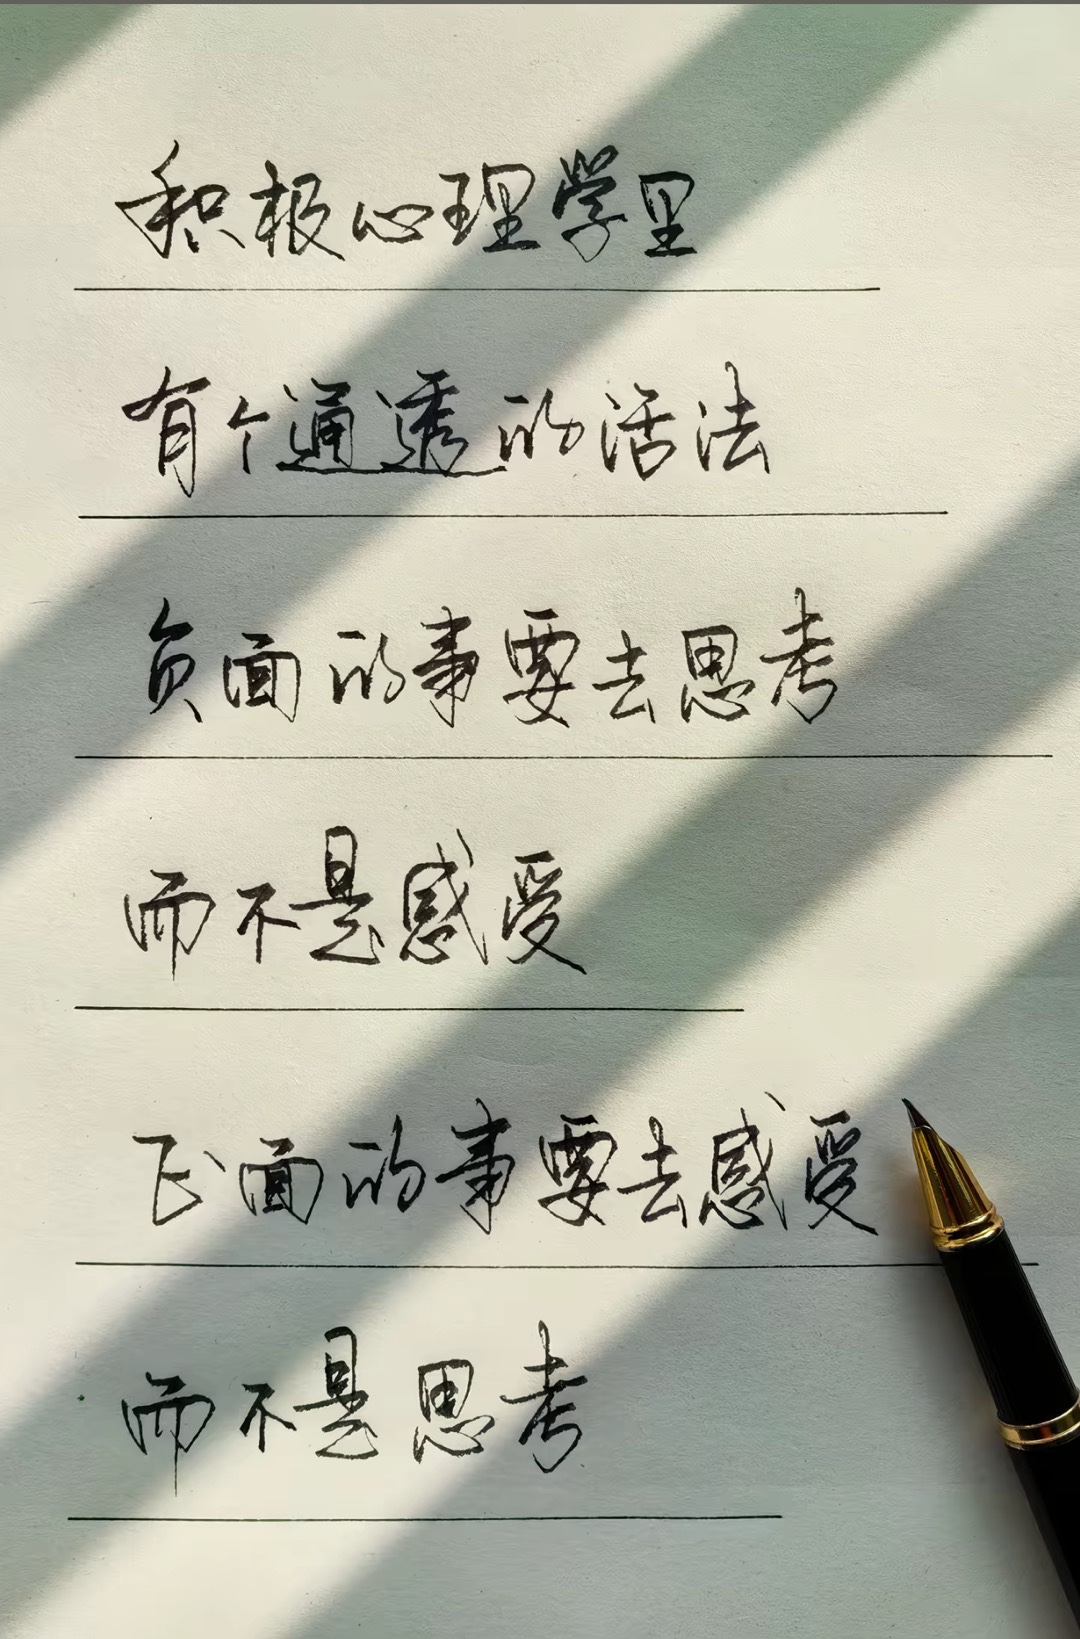 积极心理学里
有个通透的活法
负面的事要去思考
而不是感受
正面的事要去感受
而不是思考